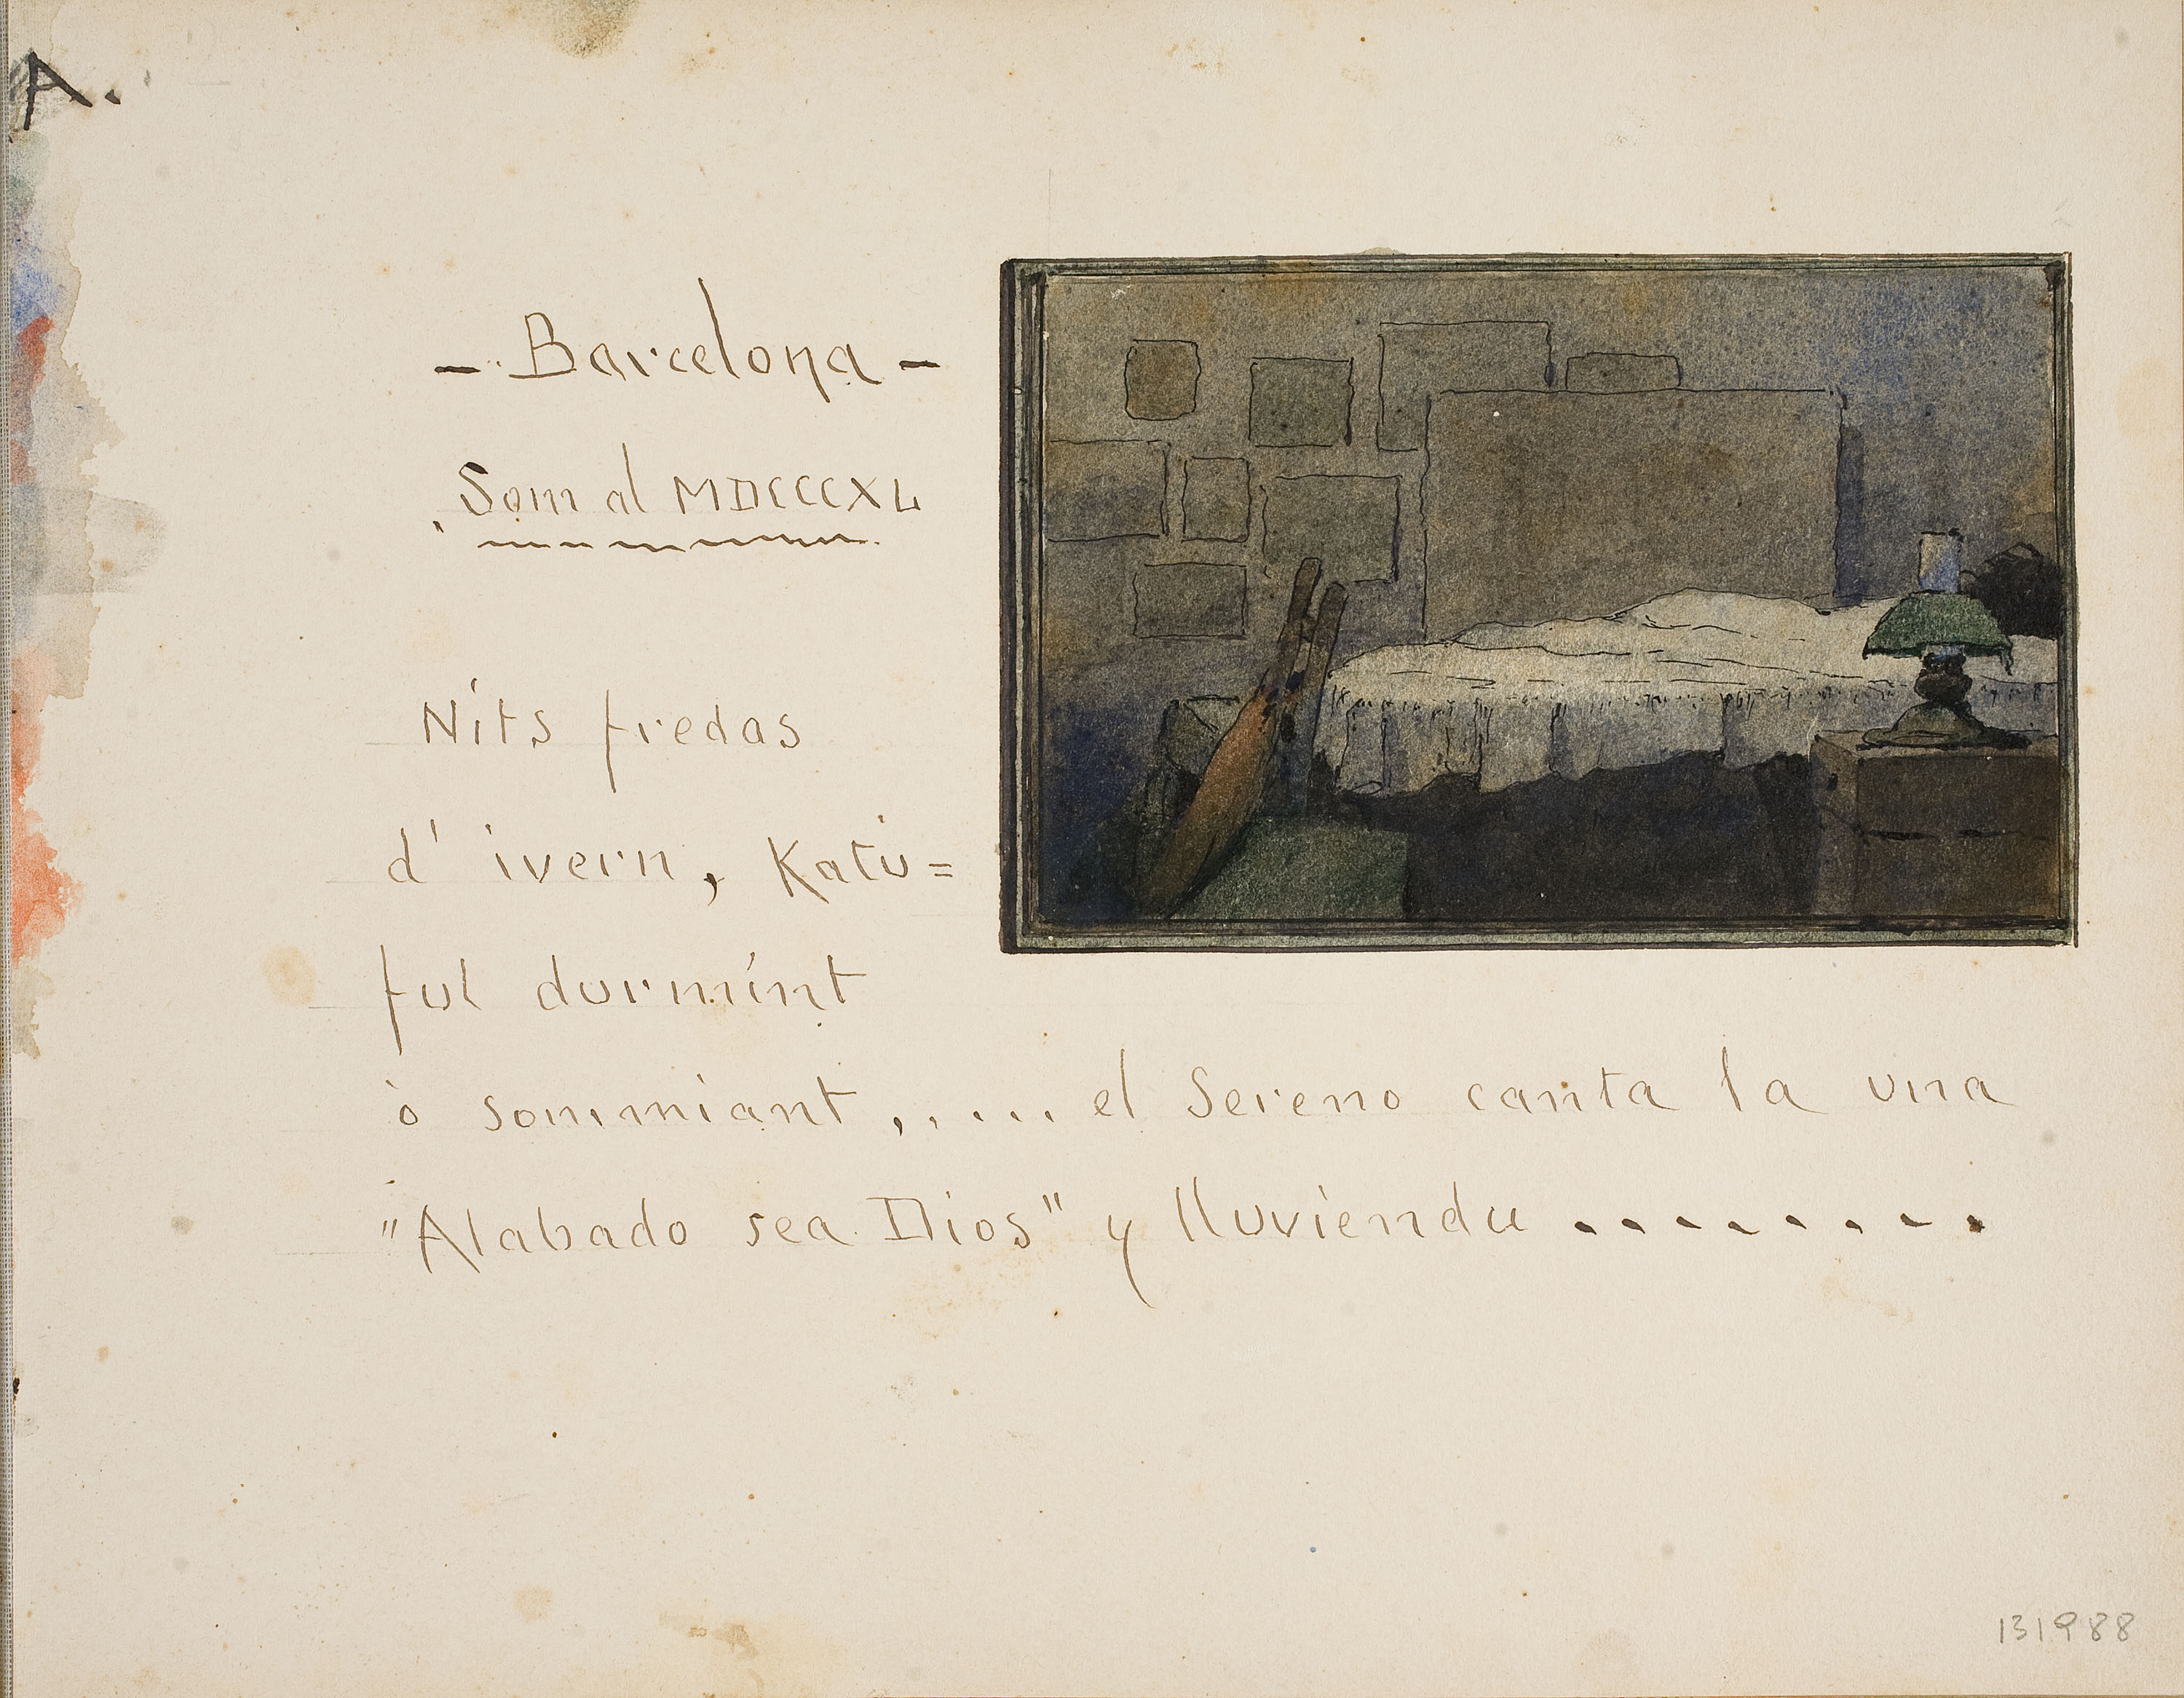 A.
- Barcelona -
Som al MDCCCXL
Nits fredas
d' ivern, Katu=
ful dormint
ò sommiant,..... el Sereno canta la una
"Alabado sea Dios" y lluviendu ........
131988